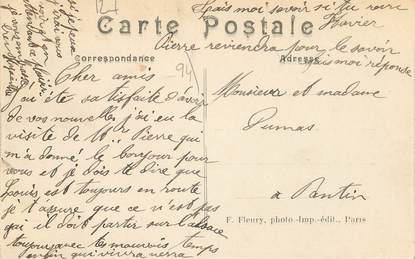 127
fais moi savoir si tu
Xavier
Carte Postale
Pierre reviendra pour le savoir
fais moi réponse
Correspondance
Adresse
94
Cher amis
j'ai été satisfaite d'avoir
de vos nouvelles j'ai eu la
visite de Mr Pierre qui
m'a donné le bonjour pour
vous et je dois te dire que
Louis est toujours en route
je t'assure que ce n'est pas
gai il doit partir sur l'alsace
toujours avec tes mauvais temps
enfin qui vivra verra
Monsieur et madame
Dumas
a Pantin
F. Fleury, photo-Imp.-édit., Paris